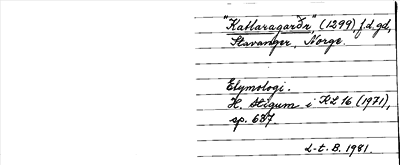 "Katlaragarðr," (1299), f.d. gd,
Stavanger, Norge.
Etymologi.
H. Stigum i KL 16 (1971),
sp. 687
L-t. B. 1981